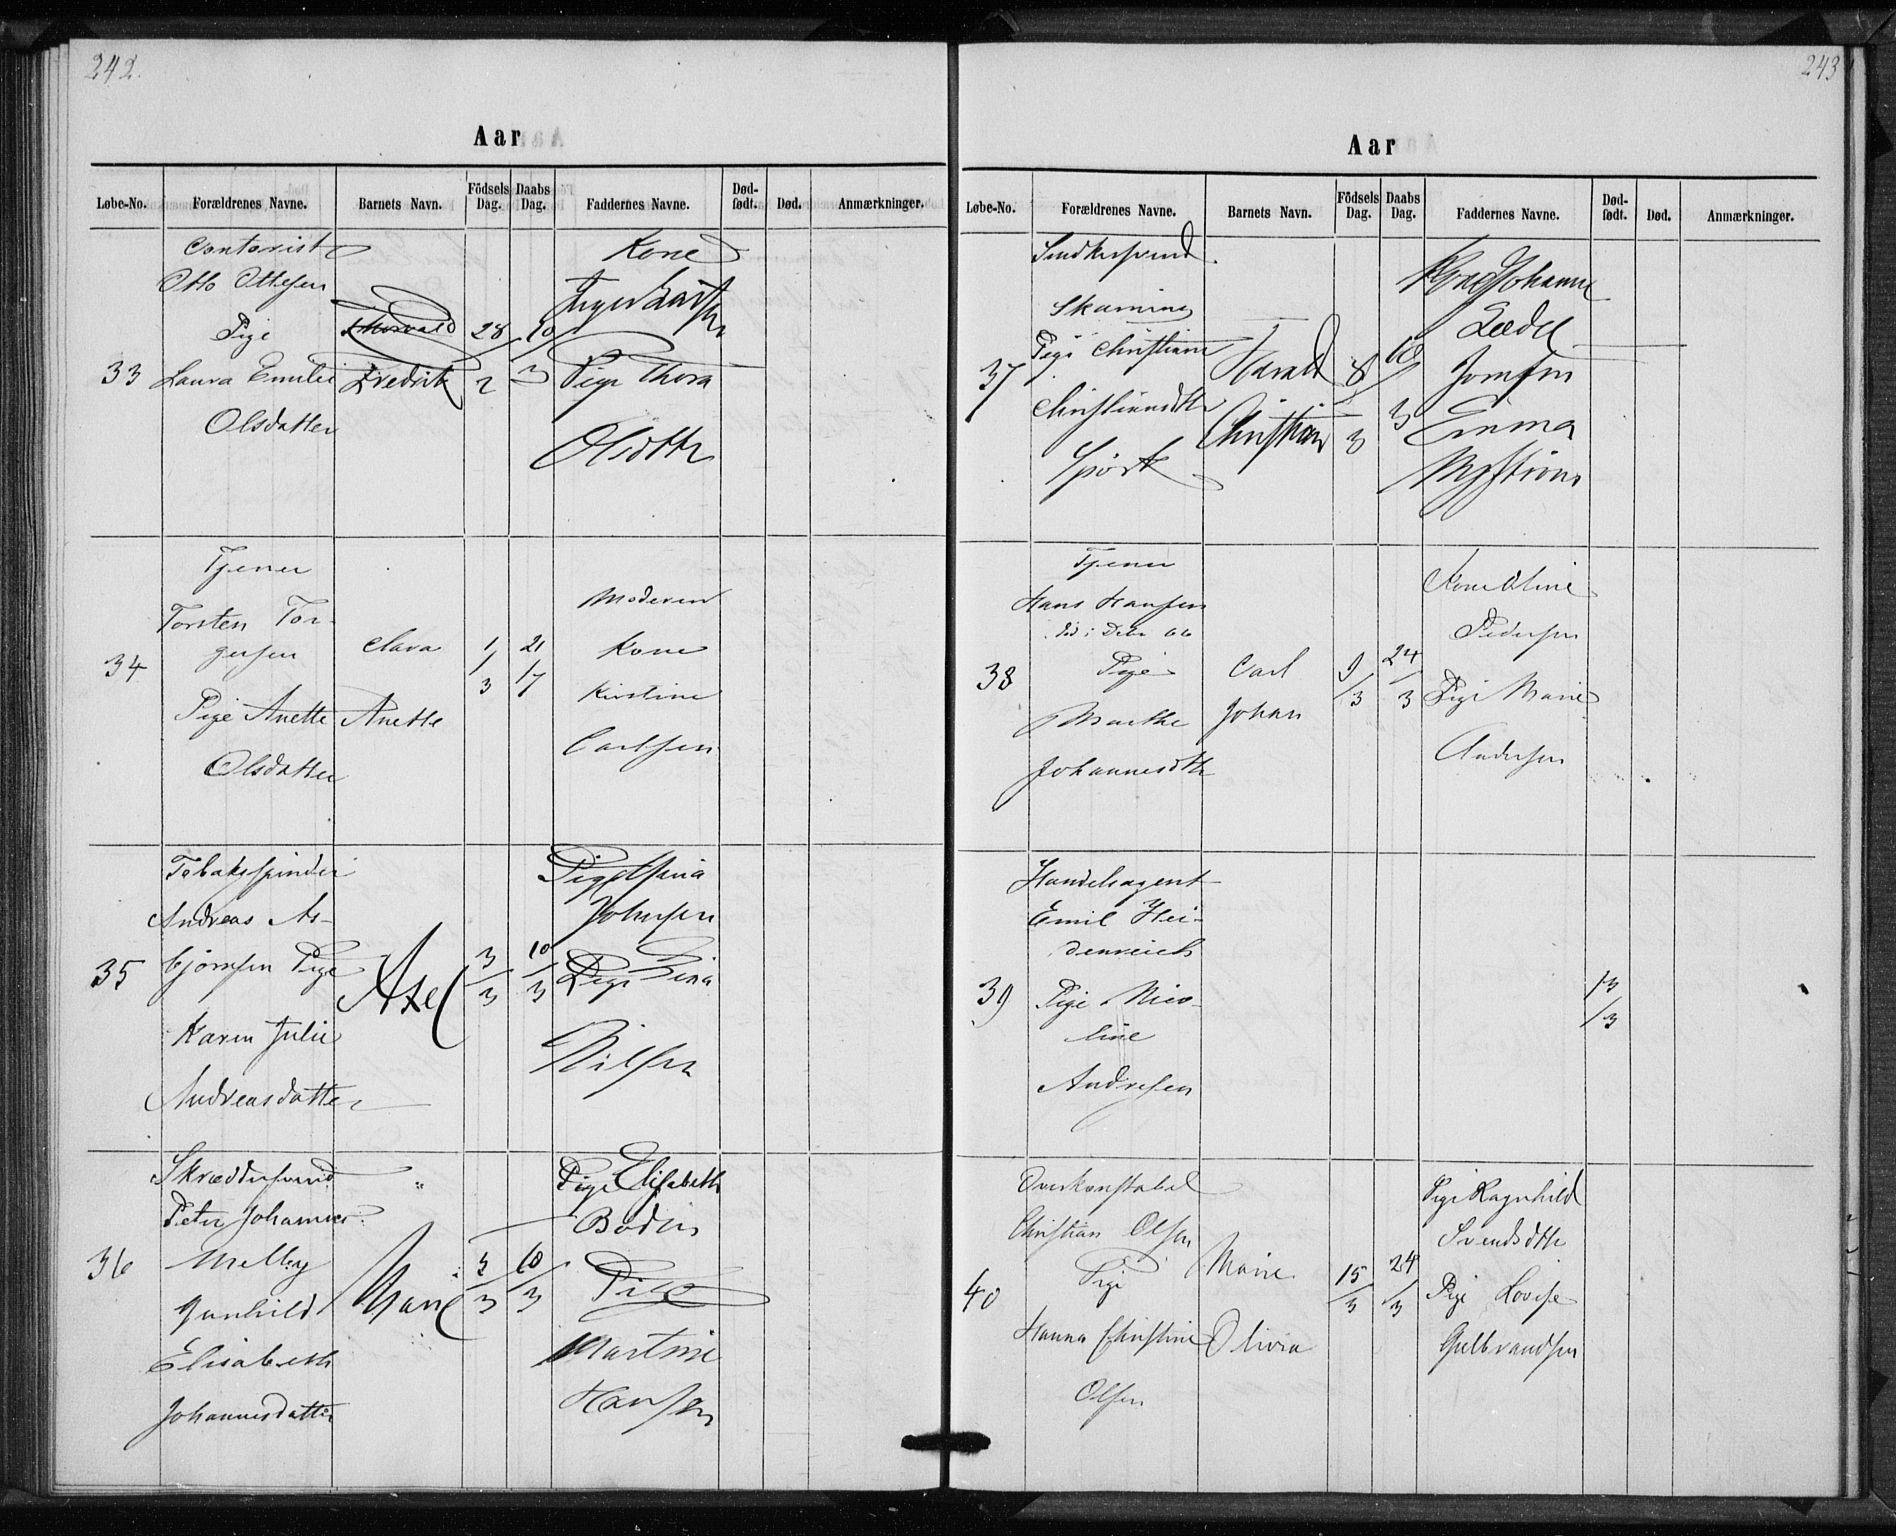 242.
Aar
Løbe-No. Forældrenes Navne. Barnets Navn. Födsels Dag. Daabs Dag. Faddernes Navne. Død-født. Død. Anmærkninger.
33
Contorist
Otto Ottesen
Pige
Laura Emilie
Olsdatter
Thorvald
Fredrik
28/2
10/3
Kone
Inger Larsen
Pige Thora
Olsdtr
34
Tjener
Torsten Tor-
gersen
Pige Anette
Olsdatter
Clara
Anette
1/3
21/7
Moderen
Kone
Kirstine
Carlsen
35
Tobaksspinder
Andreas As-
bjørnsen Pige
Karen Julie
Andreasdatter
Axel
3/3
10/3
Pige
Johnsen
Pige Lina
Nilsen
36
Skrædersvend
Peter Johannes
Melby
Gunhild
Elisabeth
Johannesdatter
Marie
3/3
10/3
Pige Elisabeth
Bodin
Pige
Martine
Hansen
243
Aar
Løbe-No. Forældrenes Navne. Barnets Navn. Födsels Dag. Daabs Dag. Faddernes Navne. Død-født. Død. Anmærkninger.
37
Snedkersvend
Skarning
Pige Christiane
Christiansdtr
Spørk
Harald
Christian
8/3
10/3
Kone Johanne
Jomfru
Emma
Nystrøm
38
Tjener
Hans Hansen
død i Debr 66
Pige
Marthe
Johannesdtr
Carl
Johan
9/3
24/3
Kone Oline
Pedersen
Pige Marie
Andersen
39
Handelsagent
Emil Hei-
denreich
Pige Nico-
line
Andresen
13/3
40
Overkonstabel
Christian Olsen
Pige
Hanna Christine
Olsen
Marie
Olivia
15/3
24/3
Pige Ragnhild
Svendsdtr
Pige Lovise
Gulbrandsen